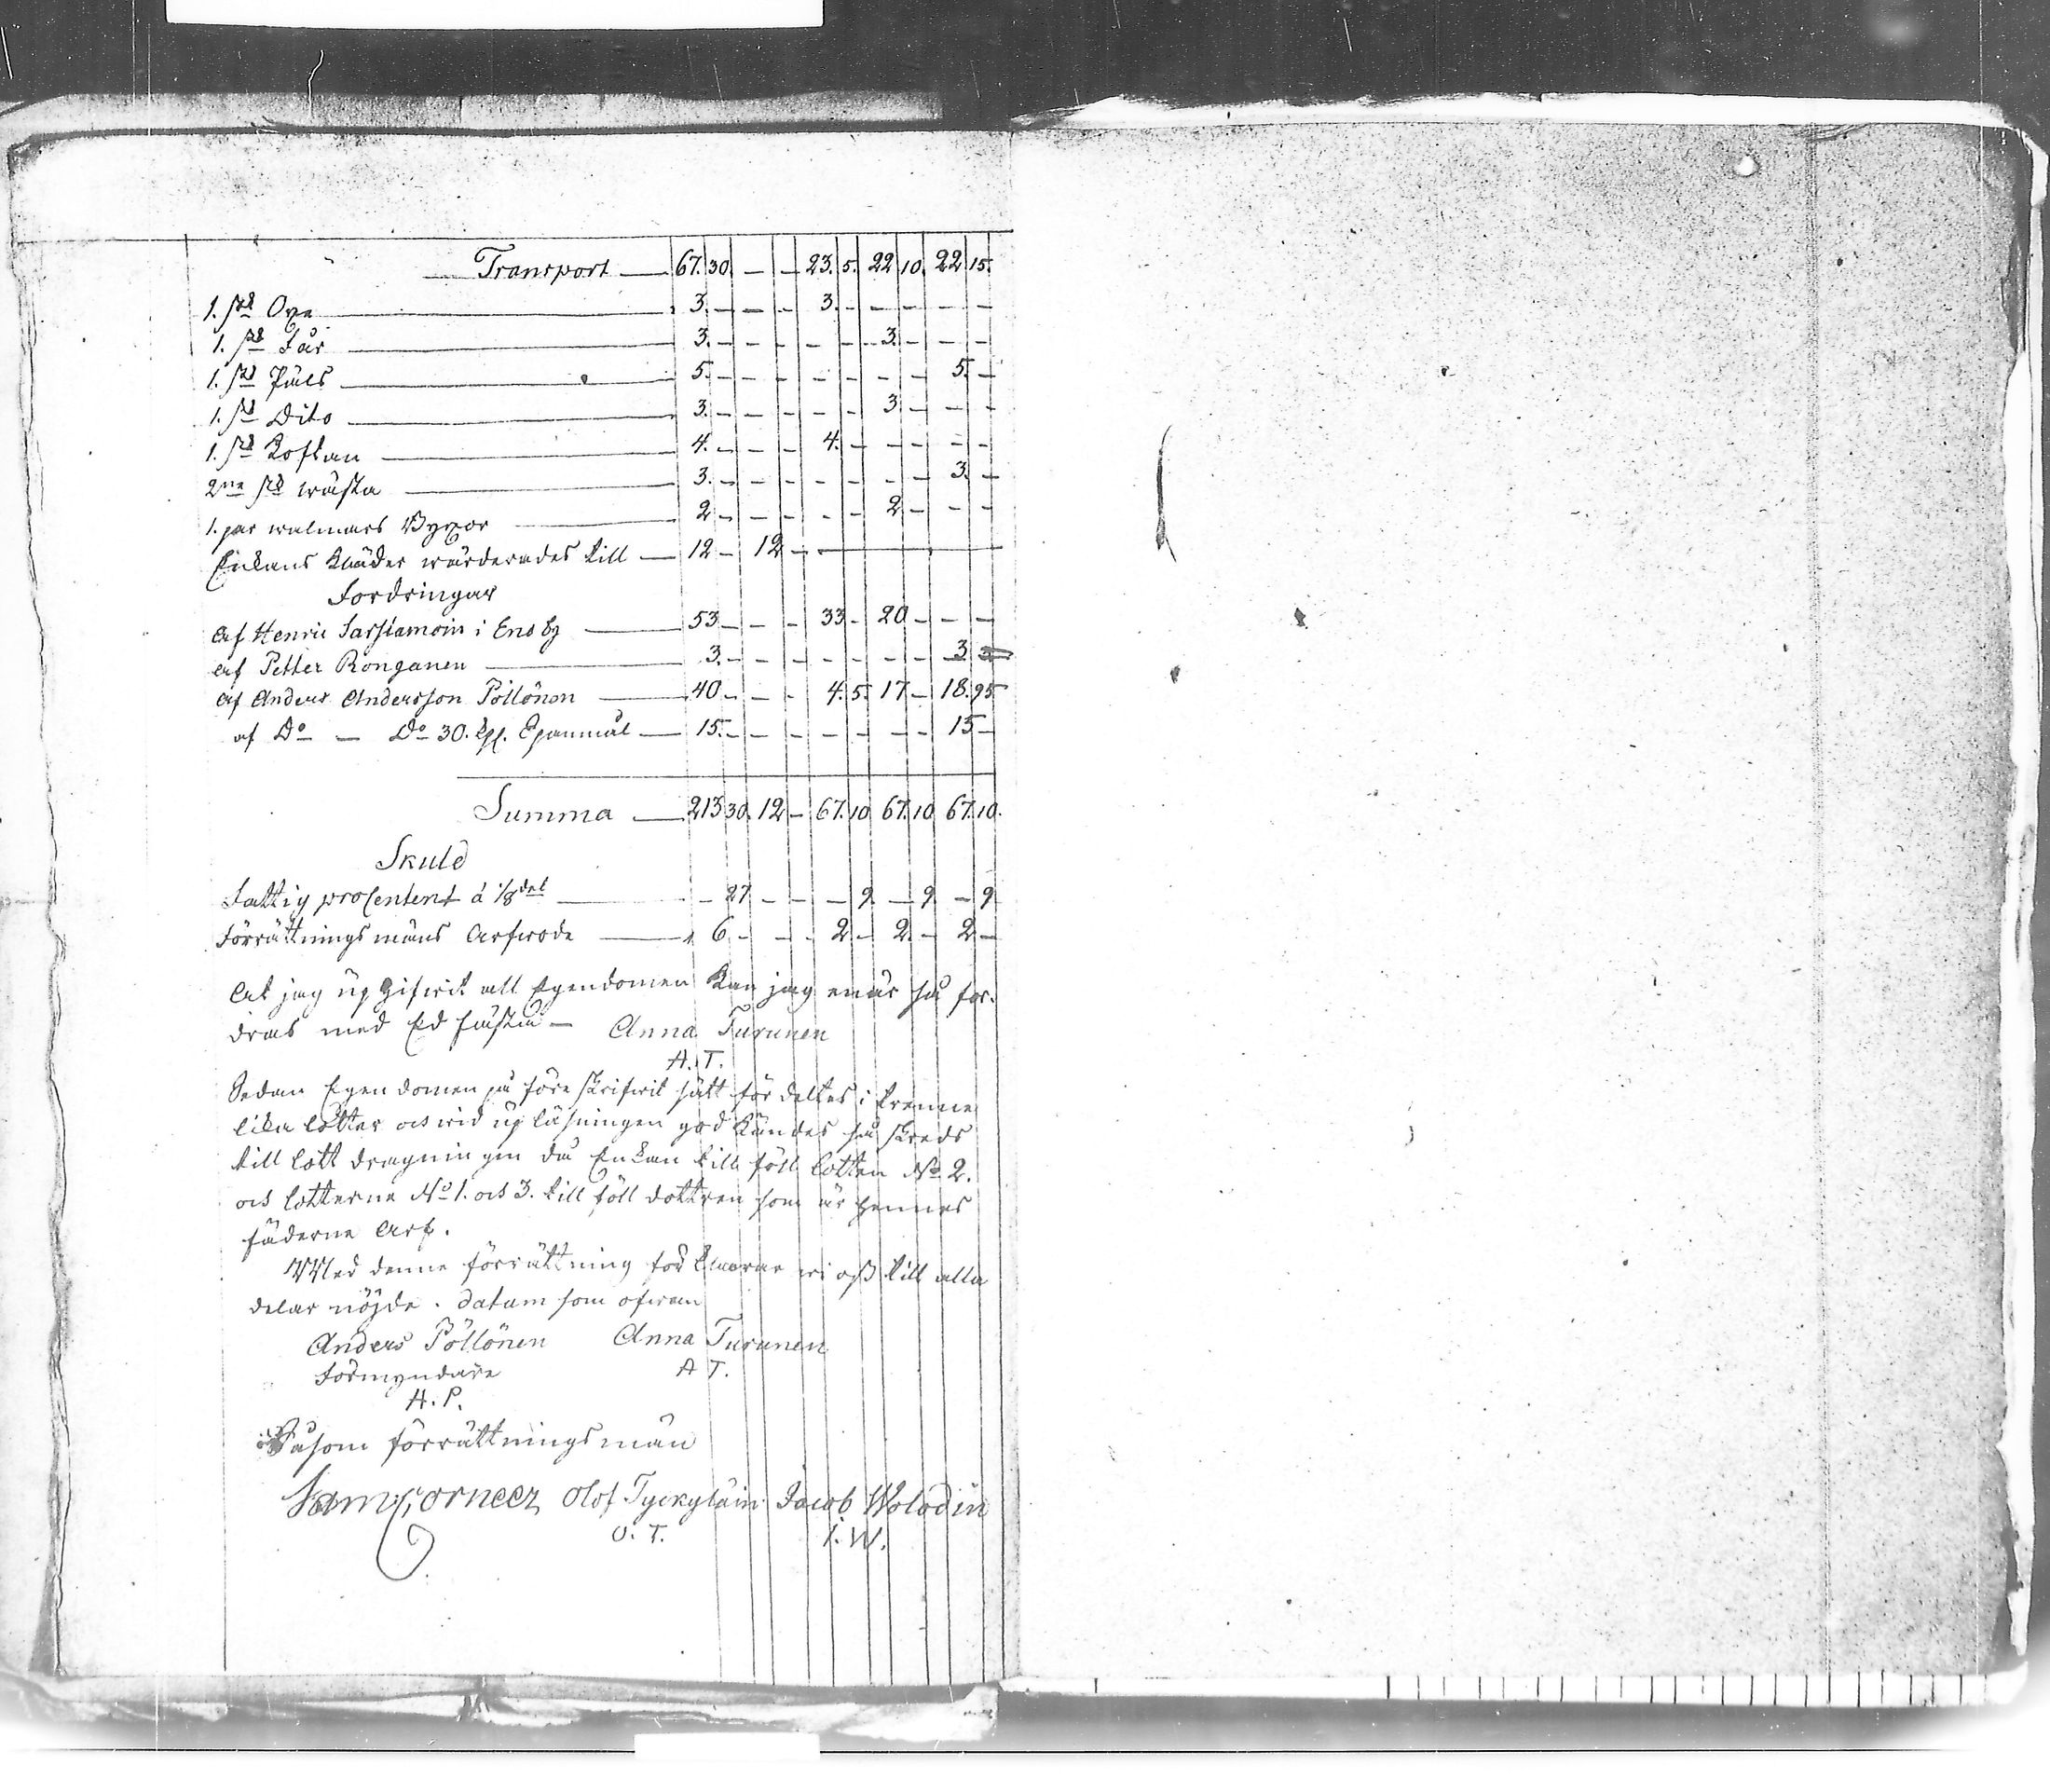 Transport — 67. 30. — — 23. 5. 22 10. 22 15.
1. st Oxe — 3. — — — 3. — — — — —
1. st Får — 3. — — — — — 3. — — —
1. st Päls — 5. — — — — — — — 5. —
1. st Dito — 3. — — — — — 3. — — —
1. st Koftan — 4. — — — 4. — — — — —
2ne st wästa — 3. — — — — — — — 3. —
1. par walmars Byxor — 2 — — — — — 2 — — —
Enkans Kläder wärderades till — 12 — 12 —
Fordringar
af Henric i Eno by — 53 — — — 33 — 20 — — —
af Petter Ronganen — 3. — — — — — — — 3
af Anders Andersson Pöllönen — 40 — — — 4. 5. 17 — 18. 95
af Do — Do 30. Spanmål — 15. — — — — — — — 15 —
Summa — 213 30. 12 — 67. 10 67. 10 67. 10.
Skuld
Fattig procentent á 1/8 del — — 27 — — — 9 — 9 — 9
Förrättningsmäns Arfwode — 6 — — — 2 — 2 — 2 —
At jag upgifwit all Egendomen Kan jag enär så for-
dras med Ed fästa — Anna Turunen
A. T.
Sedan Egendomen på föreskrifwit sätt fördeltes i trenne
lika lotter och wid upläsningen god kändes så skreds
till lott dragningen då Enkan till föll lotten No 2.
och lotterne No 1. och 3. till föll dottren som är hennes
fäderne Arf.
Med denne förrättning förklarar wi oss till alla
delar nöjde. datum som ofwan
Anders Pöllönen Anna Turunen
Förmyndare A T.
A. P.
Såsom förrättningsmän
Sam Corneer Olof Tyckyläin Jacob Wolodin
O. T. I. W.